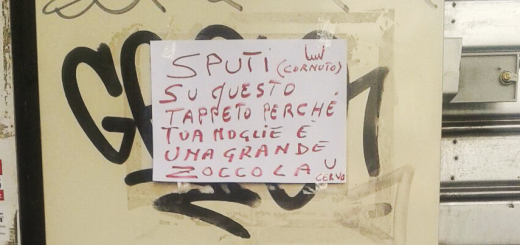 SPUTI (CORNUTO)
SU QUESTO
TAPPETO PERCHÉ
TUA MOGLIE È
UNA GRANDE
ZOCCOLA
CERVO